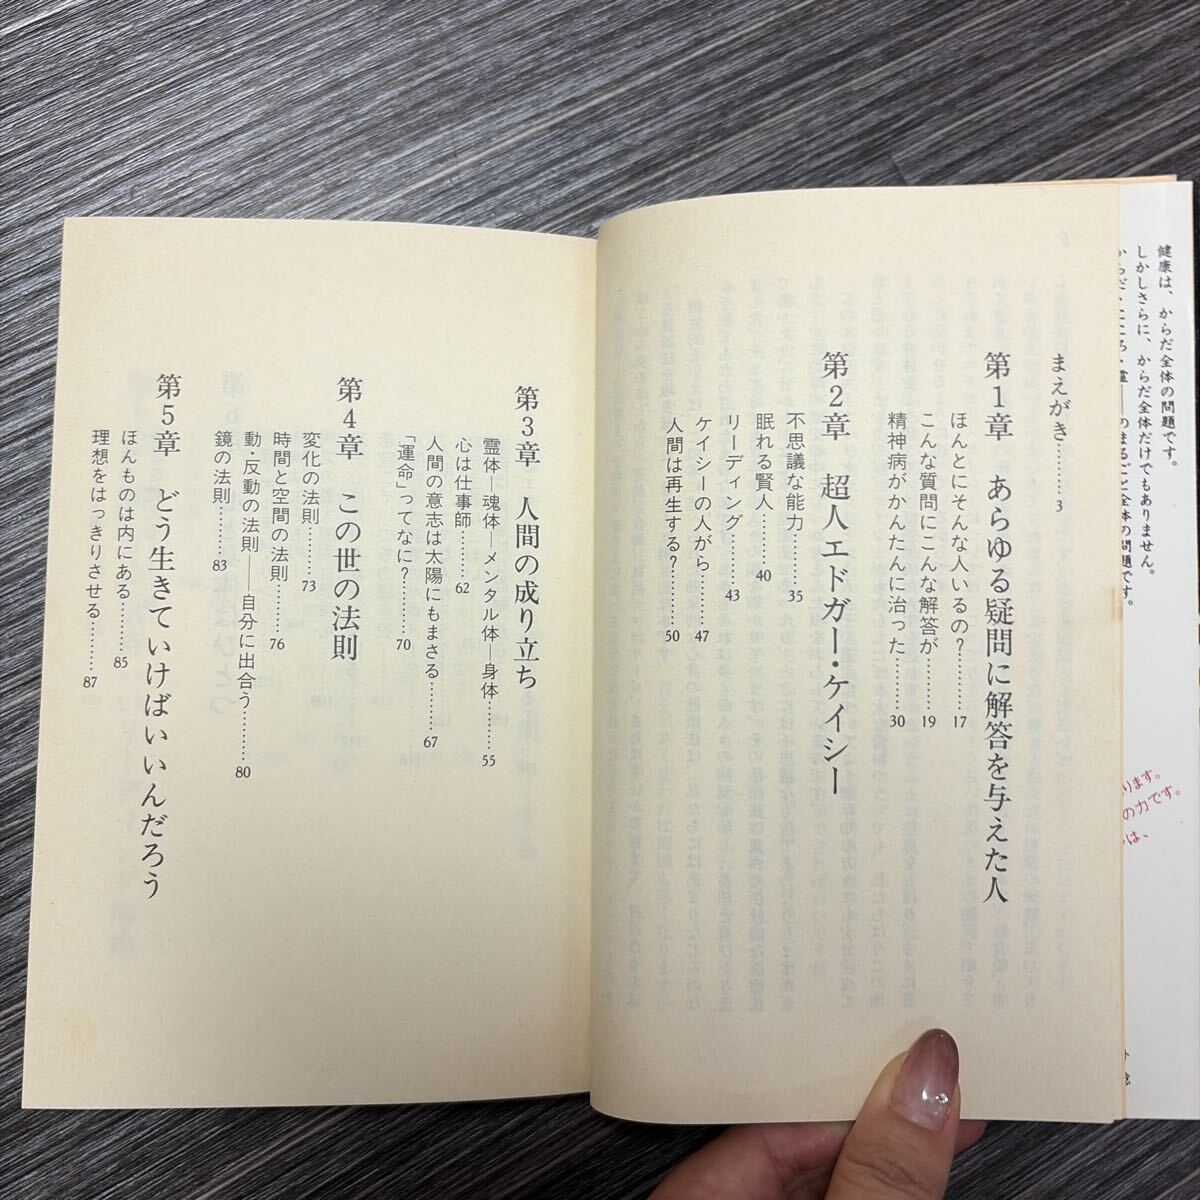 健康は、からだ全体の問題です。
しかしさらに、からだ全体だけでもありません。
からだ・こころ・霊——のまるごと全体の問題です。
ります。
の力です。
は、
まえがき………3
第1章 あらゆる疑問に解答を与えた人
ほんとにそんな人いるの?………17
こんな質問にこんな解答が………19
精神病がかんたんに治った………30
第2章 超人エドガー・ケイシー
不思議な能力………35
眠れる賢人………40
リーディング………43
ケイシーの人がら………47
人間は再生する?………50
第3章 人間の成り立ち
霊体—魂体—メンタル体—身体………55
心は仕事師………62
人間の意志は太陽にもまさる………67
「運命」ってなに?………70
第4章 この世の法則
変化の法則………73
時間と空間の法則………76
動・反動の法則——自分に出合う………80
鏡の法則………83
第5章 どう生きていけばいいんだろう
ほんものは内にある………85
理想をはっきりさせる………87